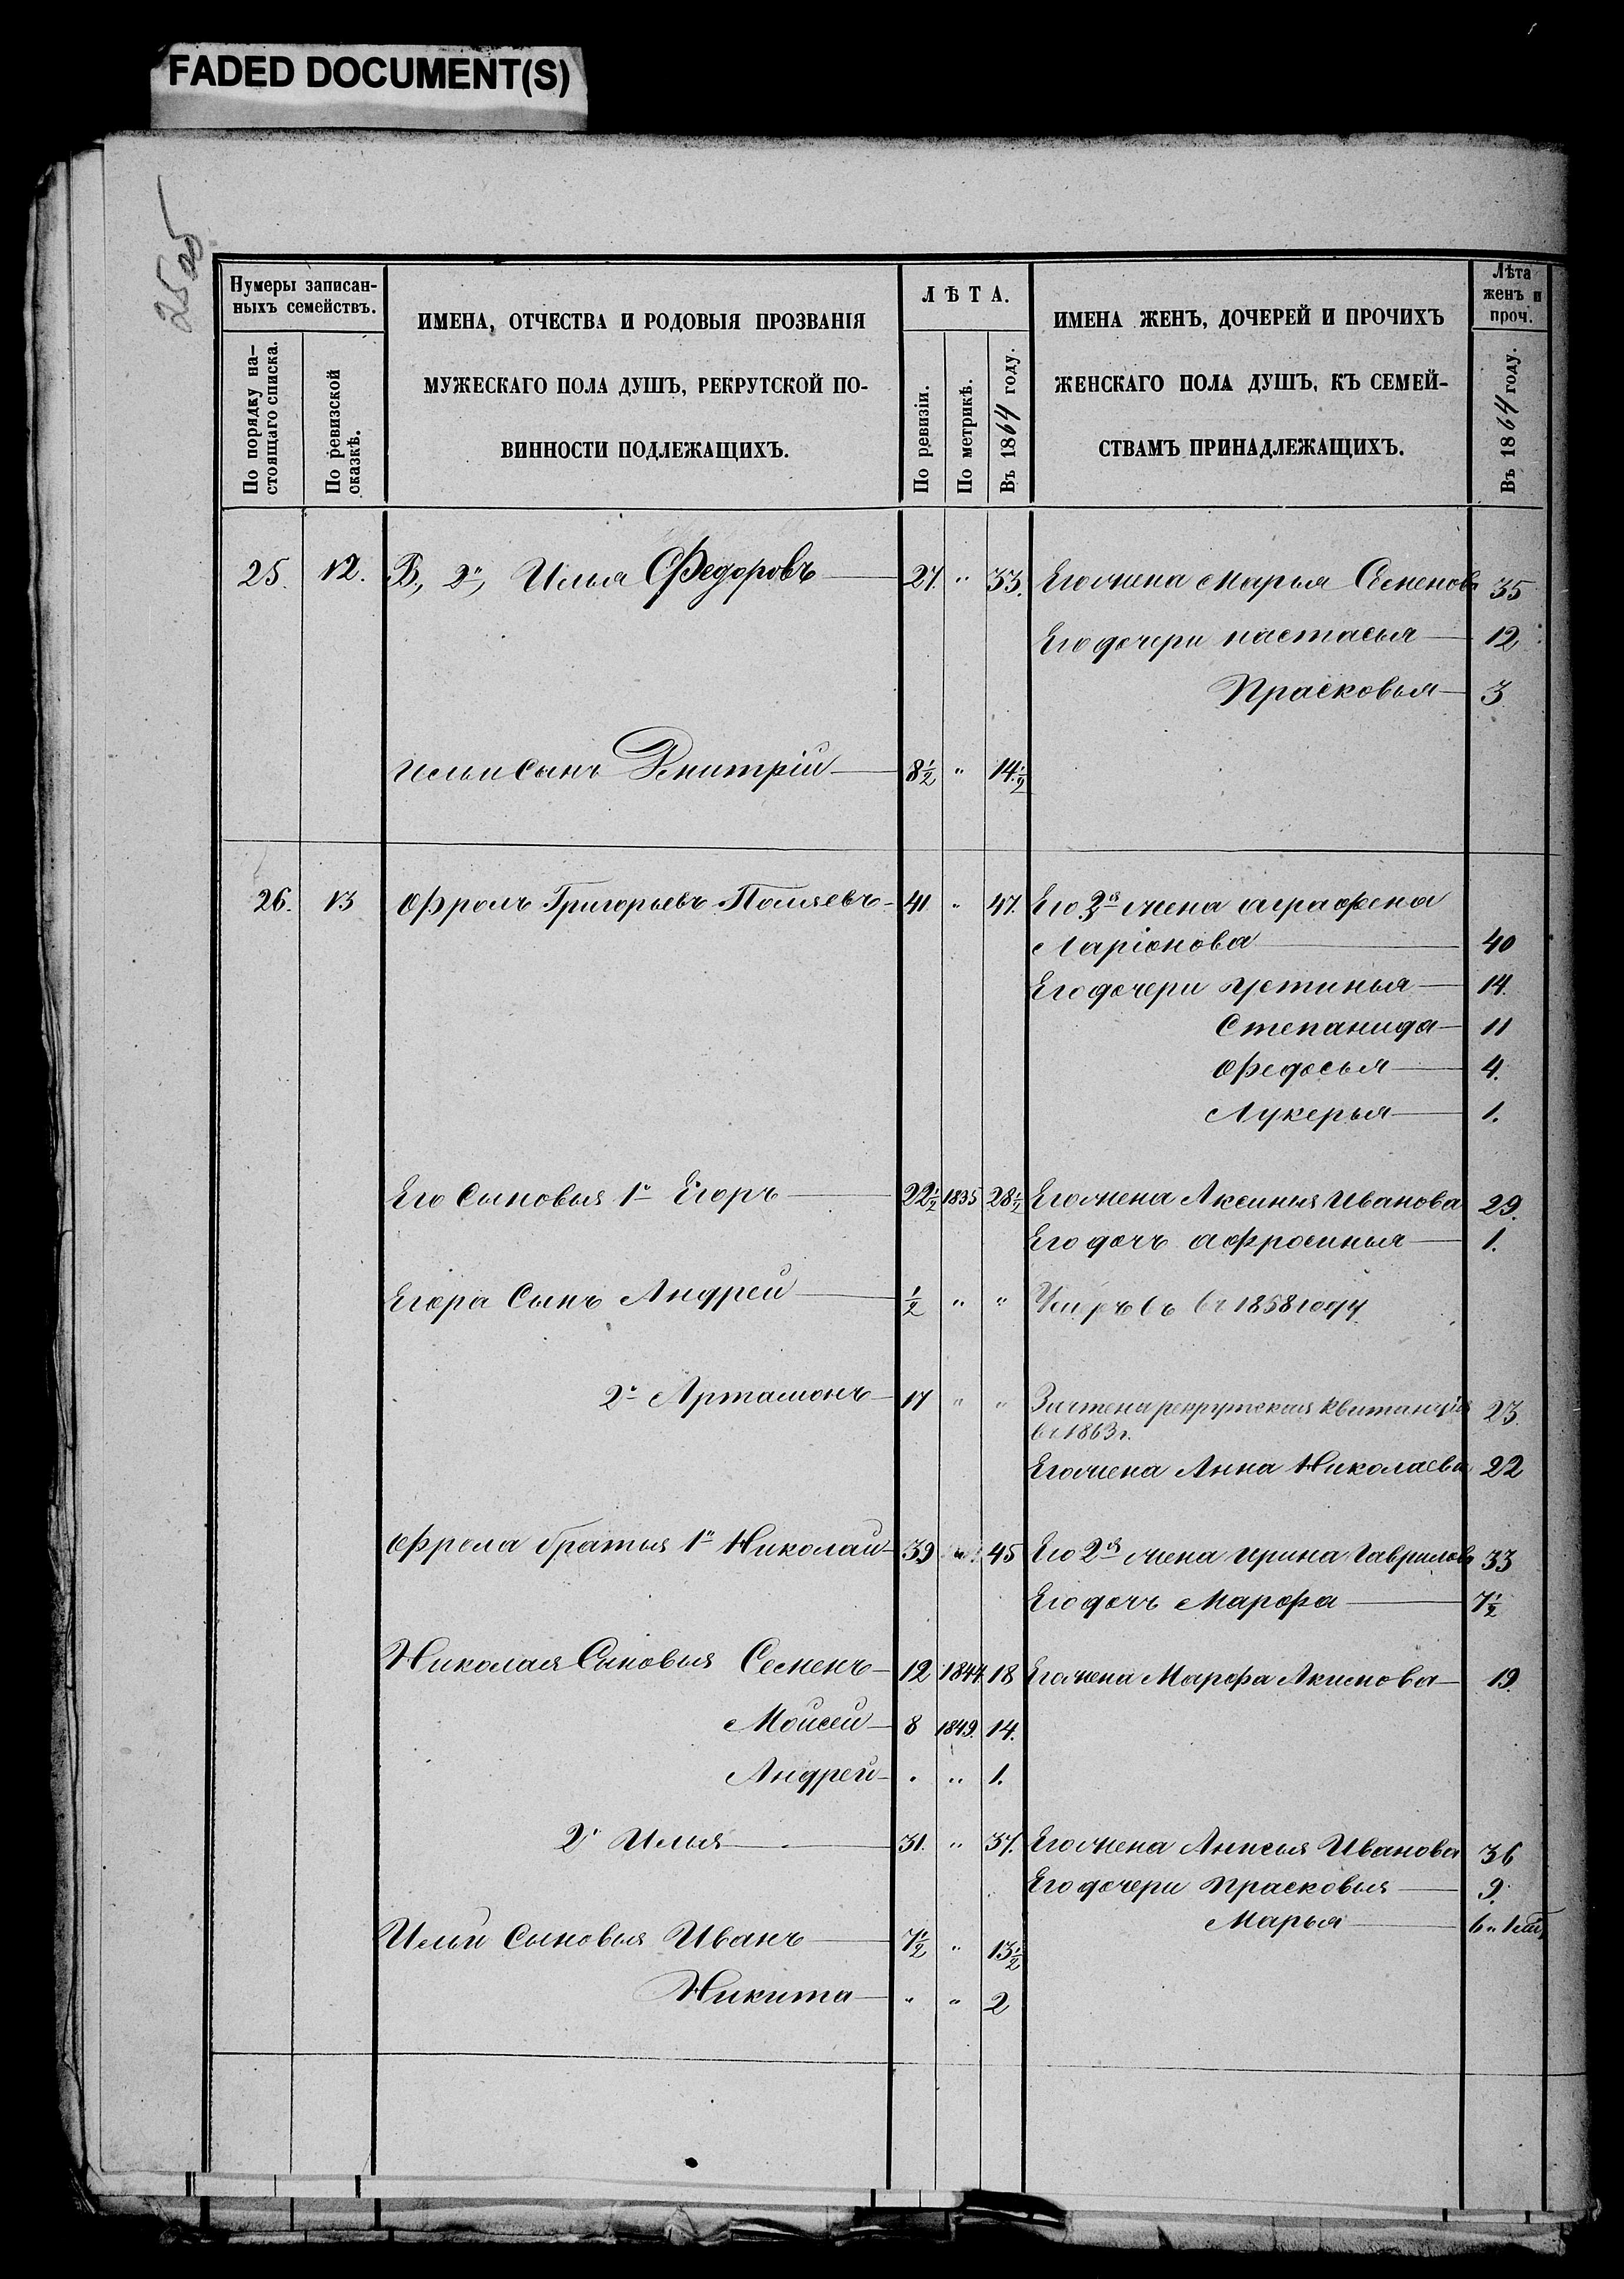 FADED DOCUMENT(S)
Нумеры записан-
ныхъ семействъ.
По порядку на-
стоящаго списка.
По ревизской
сказкѣ.
ИМЕНА, ОТЧЕСТВА И РОДОВЫЯ ПРОЗВАНІЯ
МУЖЕСКАГО ПОЛА ДУШЪ, РЕКРУТСКОЙ ПО-
ВИННОСТИ ПОДЛЕЖАЩИХЪ.
ЛѢТА.
По ревизіи.
По метрикѣ.
Въ 1864 году.
ИМЕНА ЖЕНЪ, ДОЧЕРЕЙ И ПРОЧИХЪ
ЖЕНСКАГО ПОЛА ДУШЪ, КЪ СЕМЕЙ-
СТВАМЪ ПРИНАДЛЕЖАЩИХЪ.
Лѣта
женъ и
проч.
Въ 1864 году.
25. 12. В, 2й, Илья Федоровъ 27. " 33. Его жена Марья Семенова 35
Его дочери Настасья 12
Прасковья 3
Ильи сынъ Дмитрій 8½ " 14½
26. 13 Фролъ Григорьевъ 41 " 47. Его 2я жена Аграфена
Ларіонова 40
Его дочери Устинья 14.
Степанида 11
Федосья 4.
Лукерья 1.
Его сыновья 1й Егоръ 22½ 1835 28½ Его жена Аксинья Иванова 29.
Его дочь Афросинья 1.
Егора сынъ Андрей ½ " " Умръ въ 1858 году
2й Артамонъ 17 " " Зачтена рекрутская квитанція 23.
въ 1863 г.
Его жена Анна Николаева 22
Фрола братья 1й Николай 39 " 45 Его 2я жена Ирина Гаврилова 33
Его дочь Марфа 7½
Николая сыновья Семенъ 12 1844 18 Его жена Марфа Акимова 19.
Мойсей 8 1849. 14.
Андрей . " 1.
2й Илья 31. " 37. Его жена Анисья Иванова 36
Его дочери Прасковья 9.
Марья
Ильи сыновья Иванъ 7½ " 13½
Никита " " 2